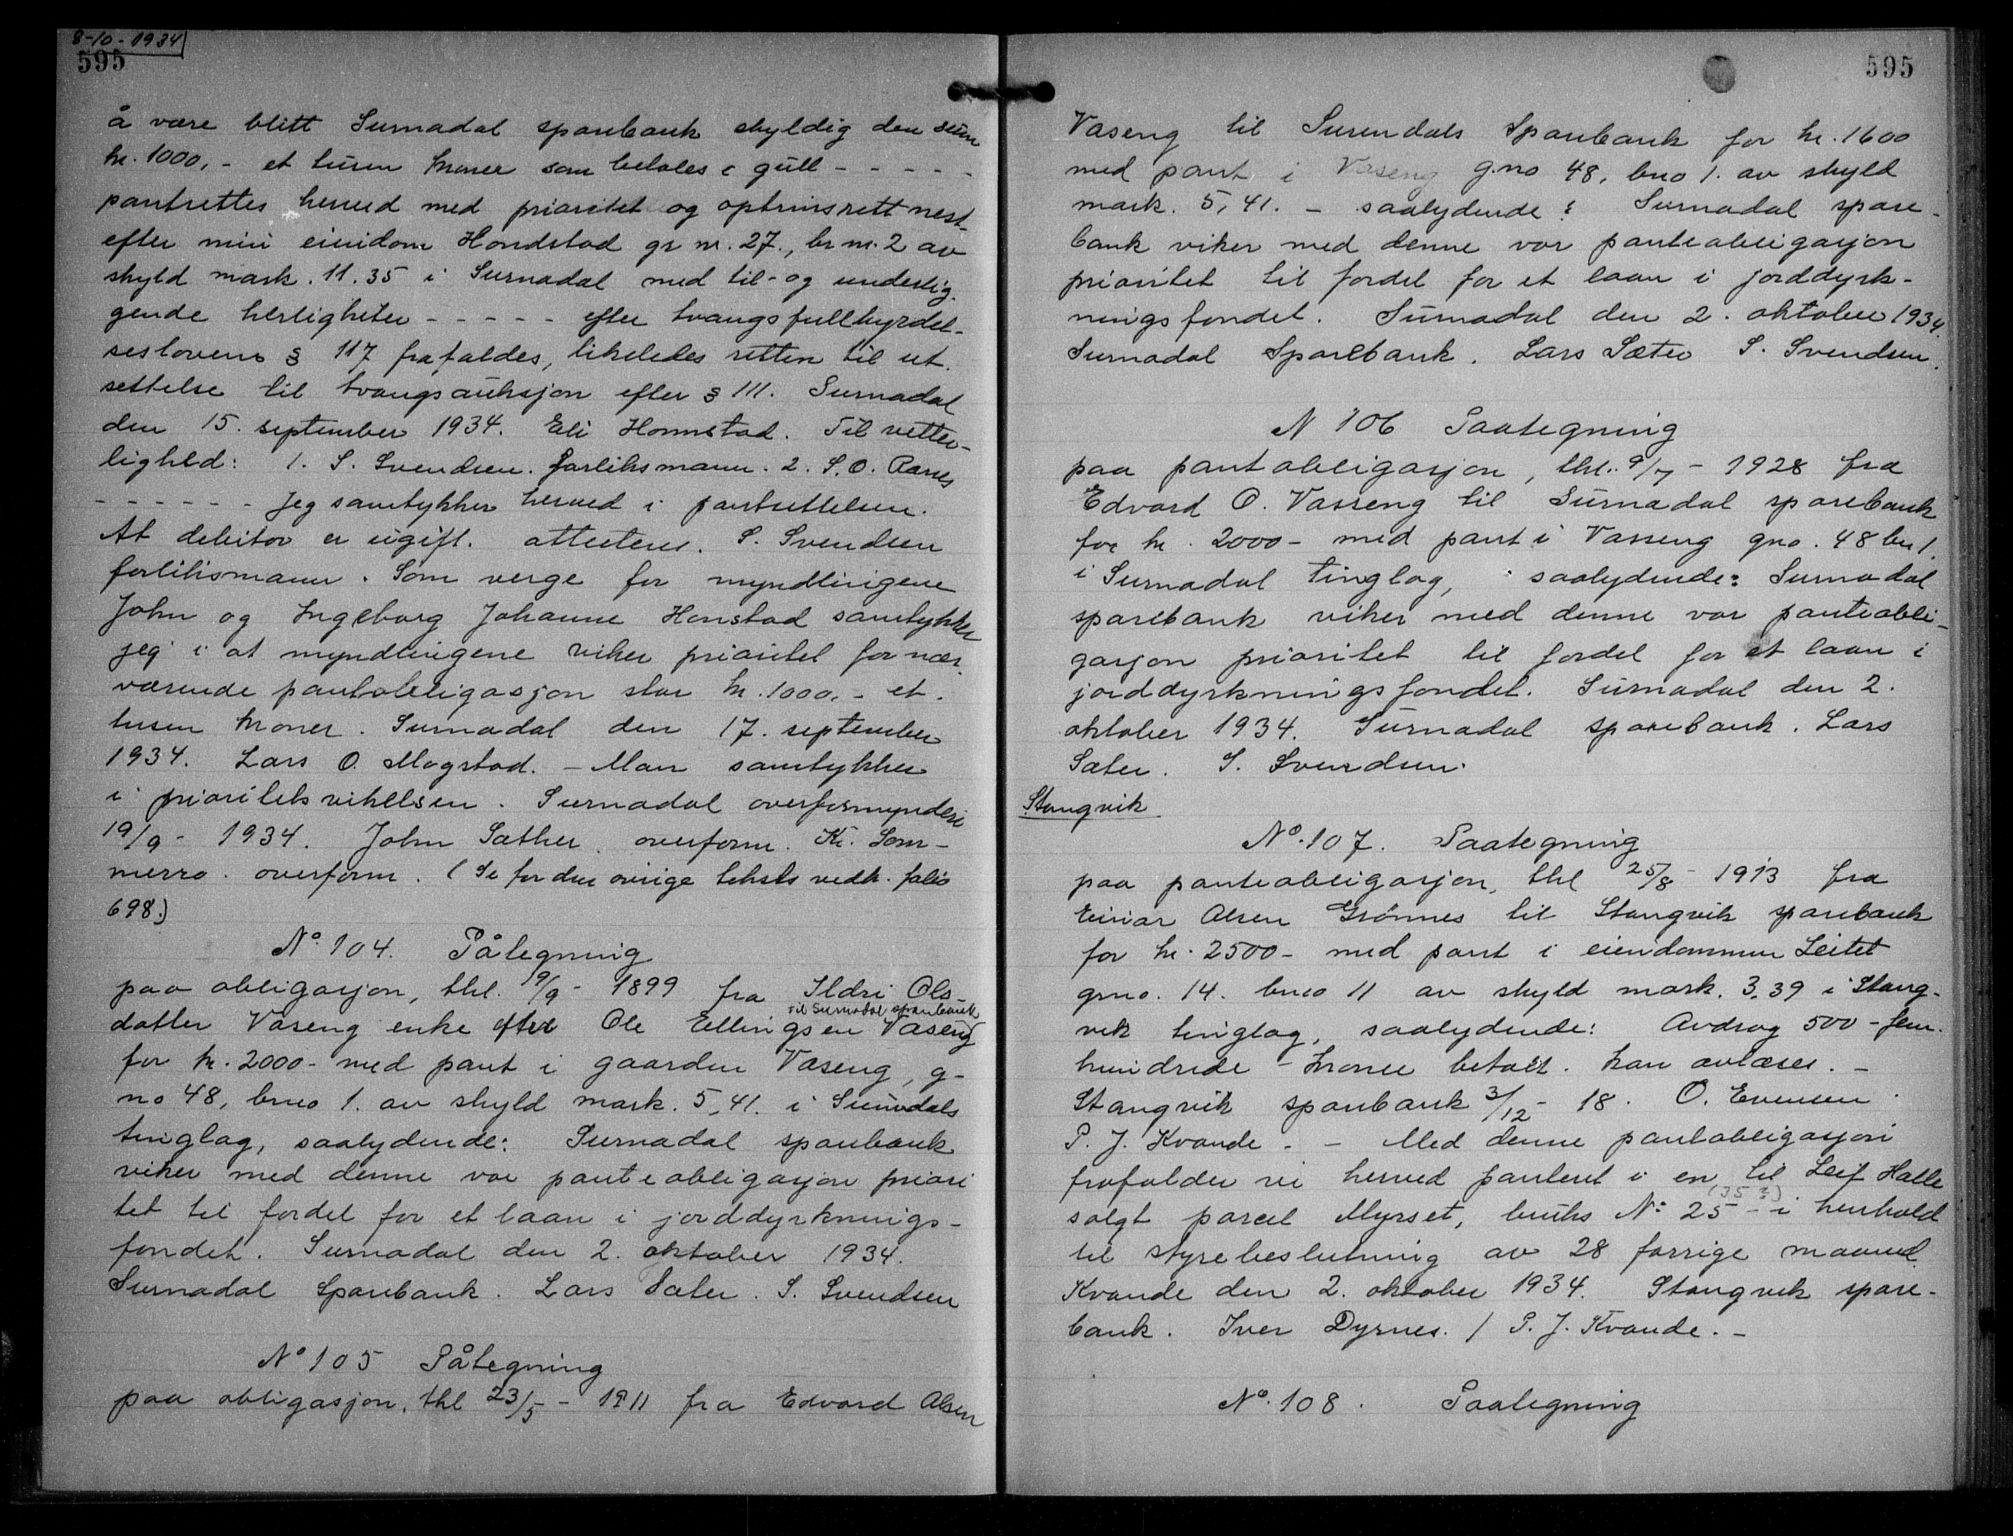 8-10-1934
595
å være blitt Surnadal sparebank skyldig den sum
kr. 1000,- et tusen kroner som betales i gull - - - - -
pantsettes herved med prioritet og optrinsrett nest
efter min eiendom Hondstad gr nr. 27., br nr. 2 av
skyld mark. 11.35 i Surnadal med til- og underlig-
gende herligheter - - - - - efter tvangsfullbyrdel-
seslovens § 117 frafaldes, likeledes retten til ut-
settelse til tvangsauksjon efter § 111. Surnadal
den 15. september 1934. Eli Honnstad. Til vitter-
lighed: 1. S. Svendsen. forliksmann. 2. S. O. Ranes
- - - - - - Jeg samtykker herved i pantsettelsen.
At debitor er ugift. attesteres. S. Svendsen
forliksmann. Som verge for myndlingene
John og Ingeborg Johanne Honstad samtykker
jeg i at myndlingene viker prioritet for nær
værende pantobligasjon stor kr. 1000,- et.
tusen kroner. Surnadal den 17. september
1934. Lars O. Mogstad. - Man samtykker
i prioritetsvikelsen. Surnadal overformynderi
19/9- 1934. John Sæther. overform. Kr. Som-
merro. overform. (Se for den øvrige teksts vedk. folio
698.)
No. 104. Påtegning
paa obligasjon, thl. 19/9- 1899 fra Ildri Ols-
til Surnadal sparebank
datter Vaseng enke efter Ole Ellingsen Vaseng
for kr. 2000- med pant i gaarden Vaseng, g-
no 48, bruno 1. av skyld mark. 5,41. i Surndals
tinglag, saalydende: Surnadal sparebank
viker med denne vor panteobligasjon priori
tet til fordel for et laan i jorddyrknings-
fondet. Surnadal den 2. oktober 1934.
Surnadal Sparebank. Lars Sæter. S. Svendsen
No 105 Påtegning
paa obligasjon, thl 23/5 - 1911 fra Edvard Olsen
595
Vaseng til Surendals Sparebank for kr. 1600
med pant i Vaseng g.no 48, bno 1. av skyld
mark. 5,41. - saalydende: Surnadal spare-
bank viker med denne vor panteobligasjon
prioritet til fordel for et laan i jorddyrk-
ningsfondet. Surnadal den 2. oktober 1934.
Surnadal Sparebank. Lars Sæter S. Svendsen.
N 106 Paategning
paa pantobligasjon, thl. 9/7 - 1928 fra
Edvard O. Vasseng til Surnadal sparebank
for kr. 2000- med pant i Vasseng gno. 48 bn 1.
i Surnadal tinglag, saalydende: Surnadal
sparebank viker med denne vor panteobli-
gasjon prioritet til fordel for et laan i
jorddyrkningsfondet. Surnadal den 2.
oktober 1934. Surnadal sparebank. Lars
Sæter. S. Svendsen.
Stangvik
No. 107. Paategning
paa panteobligasjon, thl 25/8 - 1913 fra
Einar Olsen Grønnes til Stangvik sparebank
for kr. 2500- med pant i eiendommen Leitet
grno. 14. bruno 11 av skyld mark. 3.39 i Stang-
vik tinglag, saalydende: Avdrag 500 - fem-
hundrede - kroner betalt. kan avlæses. -
Stangvik sparebank 3/12 - 18. O. Evensen.
P. J. Kvande. - - Med denne pantobligasjon
frafalder vi herved panteret i en til Leif Halle
(35 ?)
solgt parcel Myrset, bruks No 25 - i henhold
til styrebeslutning av 28 forrige maaned.
Kvande den 2. oktober 1934. Stangvik spare-
bank. Iver Dyrnes. / P. J. Kvande. -
No. 108. Paategning